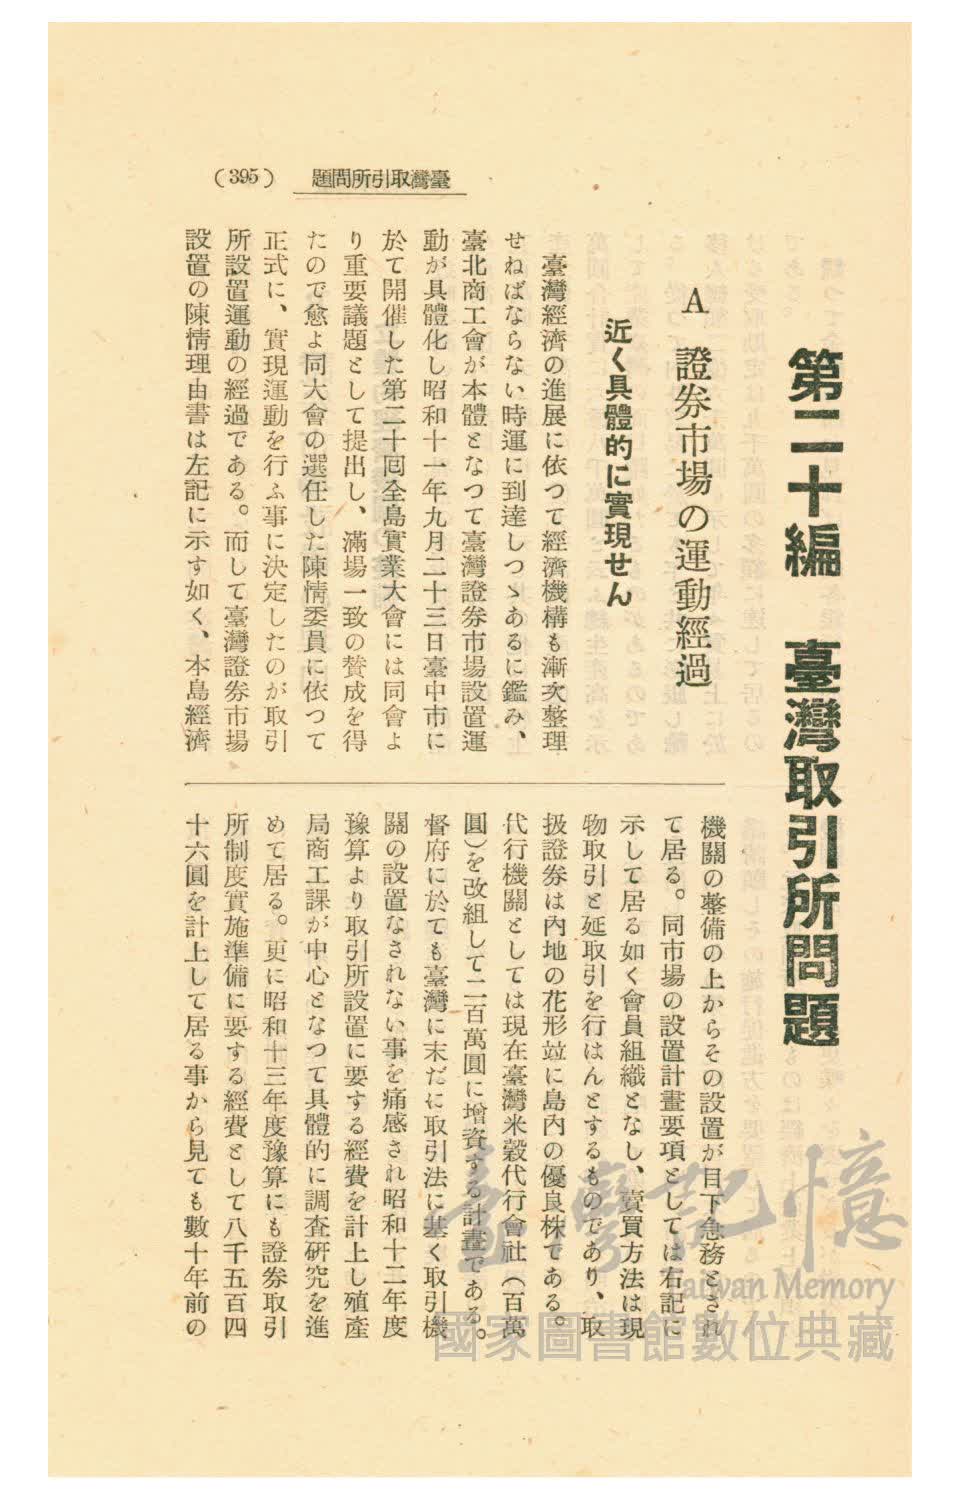 (395) 臺灣取引所問題
第二十編 臺灣取引所問題
A 證券市場の運動經過
近く具體的に實現せん
臺灣經濟の進展に依つて經濟機構も漸次整理
せねばならない時運に到達しつゝあるに鑑み、
臺北商工會が本體となつて臺灣證券市場設置運
動が具體化し昭和十一年九月二十三日臺中市に
於て開催した第二十囘全島實業大會には同會よ
り重要議題として提出し、滿場一致の賛成を得
たので愈よ同大會の選任した陳情委員に依つて
正式に、實現運動を行ふ事に決定したのが取引
所設置運動の經過である。而して臺灣證券市場
設置の陳情理由書は左記に示す如く、本島經濟
機關の整備の上からその設置が目下急務とされ
て居る。同市場の設置計畫要項としては右記に
示して居る如く會員組織となし、賣買方法は現
物取引と延取引を行はんとするものであり、取
扱證券は內地の花形竝に島內の優良株である。
代行機關としては現在臺灣米穀代行會社（百萬
圓）を改組して二百萬圓に增資する計畫である。
督府に於ても臺灣に末だに取引法に基く取引機
關の設置なされない事を痛感され昭和十二年度
豫算より取引所設置に要する經費を計上し殖產
局商工課が中心となつて具體的に調査硏究を進
めて居る。更に昭和十三年度豫算にも證券取引
所制度實施準備に要する經費として八千五百四
十六圓を計上して居る事から見ても數十年前の
臺灣記憶
Taiwan Memory
國家圖書館數位典藏